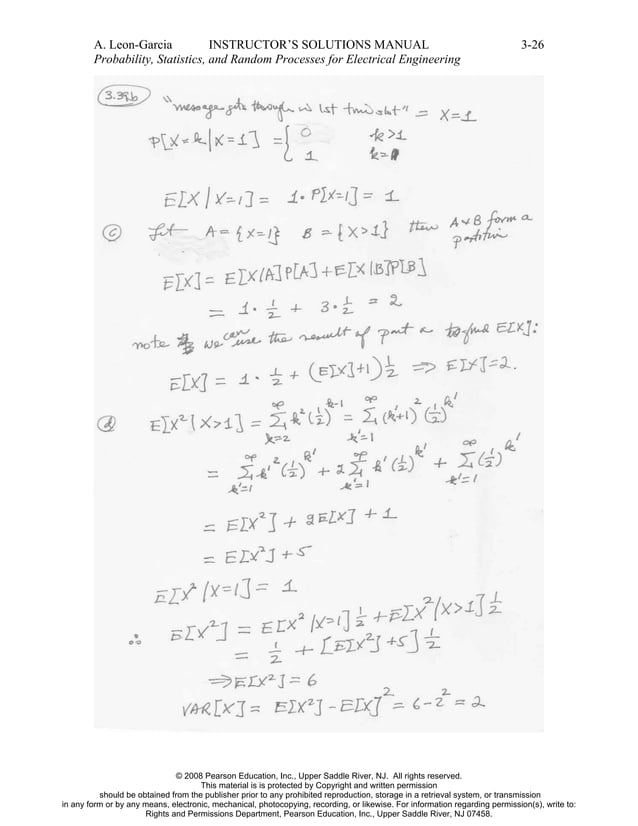 A. Leon-Garcia INSTRUCTOR'S SOLUTIONS MANUAL 3-26
Probability, Statistics, and Random Processes for Electrical Engineering
3.39b "message gets through in 1st time slot" = X=1
P[X=k|X=1] = { 0 k>1
1 k=1
E[X|X=1] = 1·P[X=1] = 1
(c) Let A={X=1} B={X>1} then A & B form a
partition
E[X] = E[X|A]P[A]+E[X|B]P[B]
= 1·1/2 + 3·1/2 = 2
note we can use the result of part a to find E[X]:
E[X] = 1·1/2 + (E[X]+1)1/2 ⇒ E[X]=2.
(d) E[X²|X>1] = ∑_{k=2}^{∞} k²(1/2)^{k-1} = ∑_{k'=1}^{∞} (k'+1)²(1/2)^{k'}
= ∑_{k'=1}^{∞} k'²(1/2)^{k'} + 2∑_{k'=1}^{∞} k'(1/2)^{k'} + ∑_{k'=1}^{∞} (1/2)^{k'}
= E[X²] + 2E[X] + 1
= E[X²] + 5
E[X²|X=1] = 1
∴ E[X²] = E[X²|X=1]1/2 + E[X²|X>1]1/2
= 1/2 + [E[X²]+5]1/2
⇒ E[X²] = 6
VAR[X] = E[X²] - E[X]² = 6-2² = 2
© 2008 Pearson Education, Inc., Upper Saddle River, NJ. All rights reserved.
This material is is protected by Copyright and written permission
should be obtained from the publisher prior to any prohibited reproduction, storage in a retrieval system, or transmission
in any form or by any means, electronic, mechanical, photocopying, recording, or likewise. For information regarding permission(s), write to:
Rights and Permissions Department, Pearson Education, Inc., Upper Saddle River, NJ 07458.